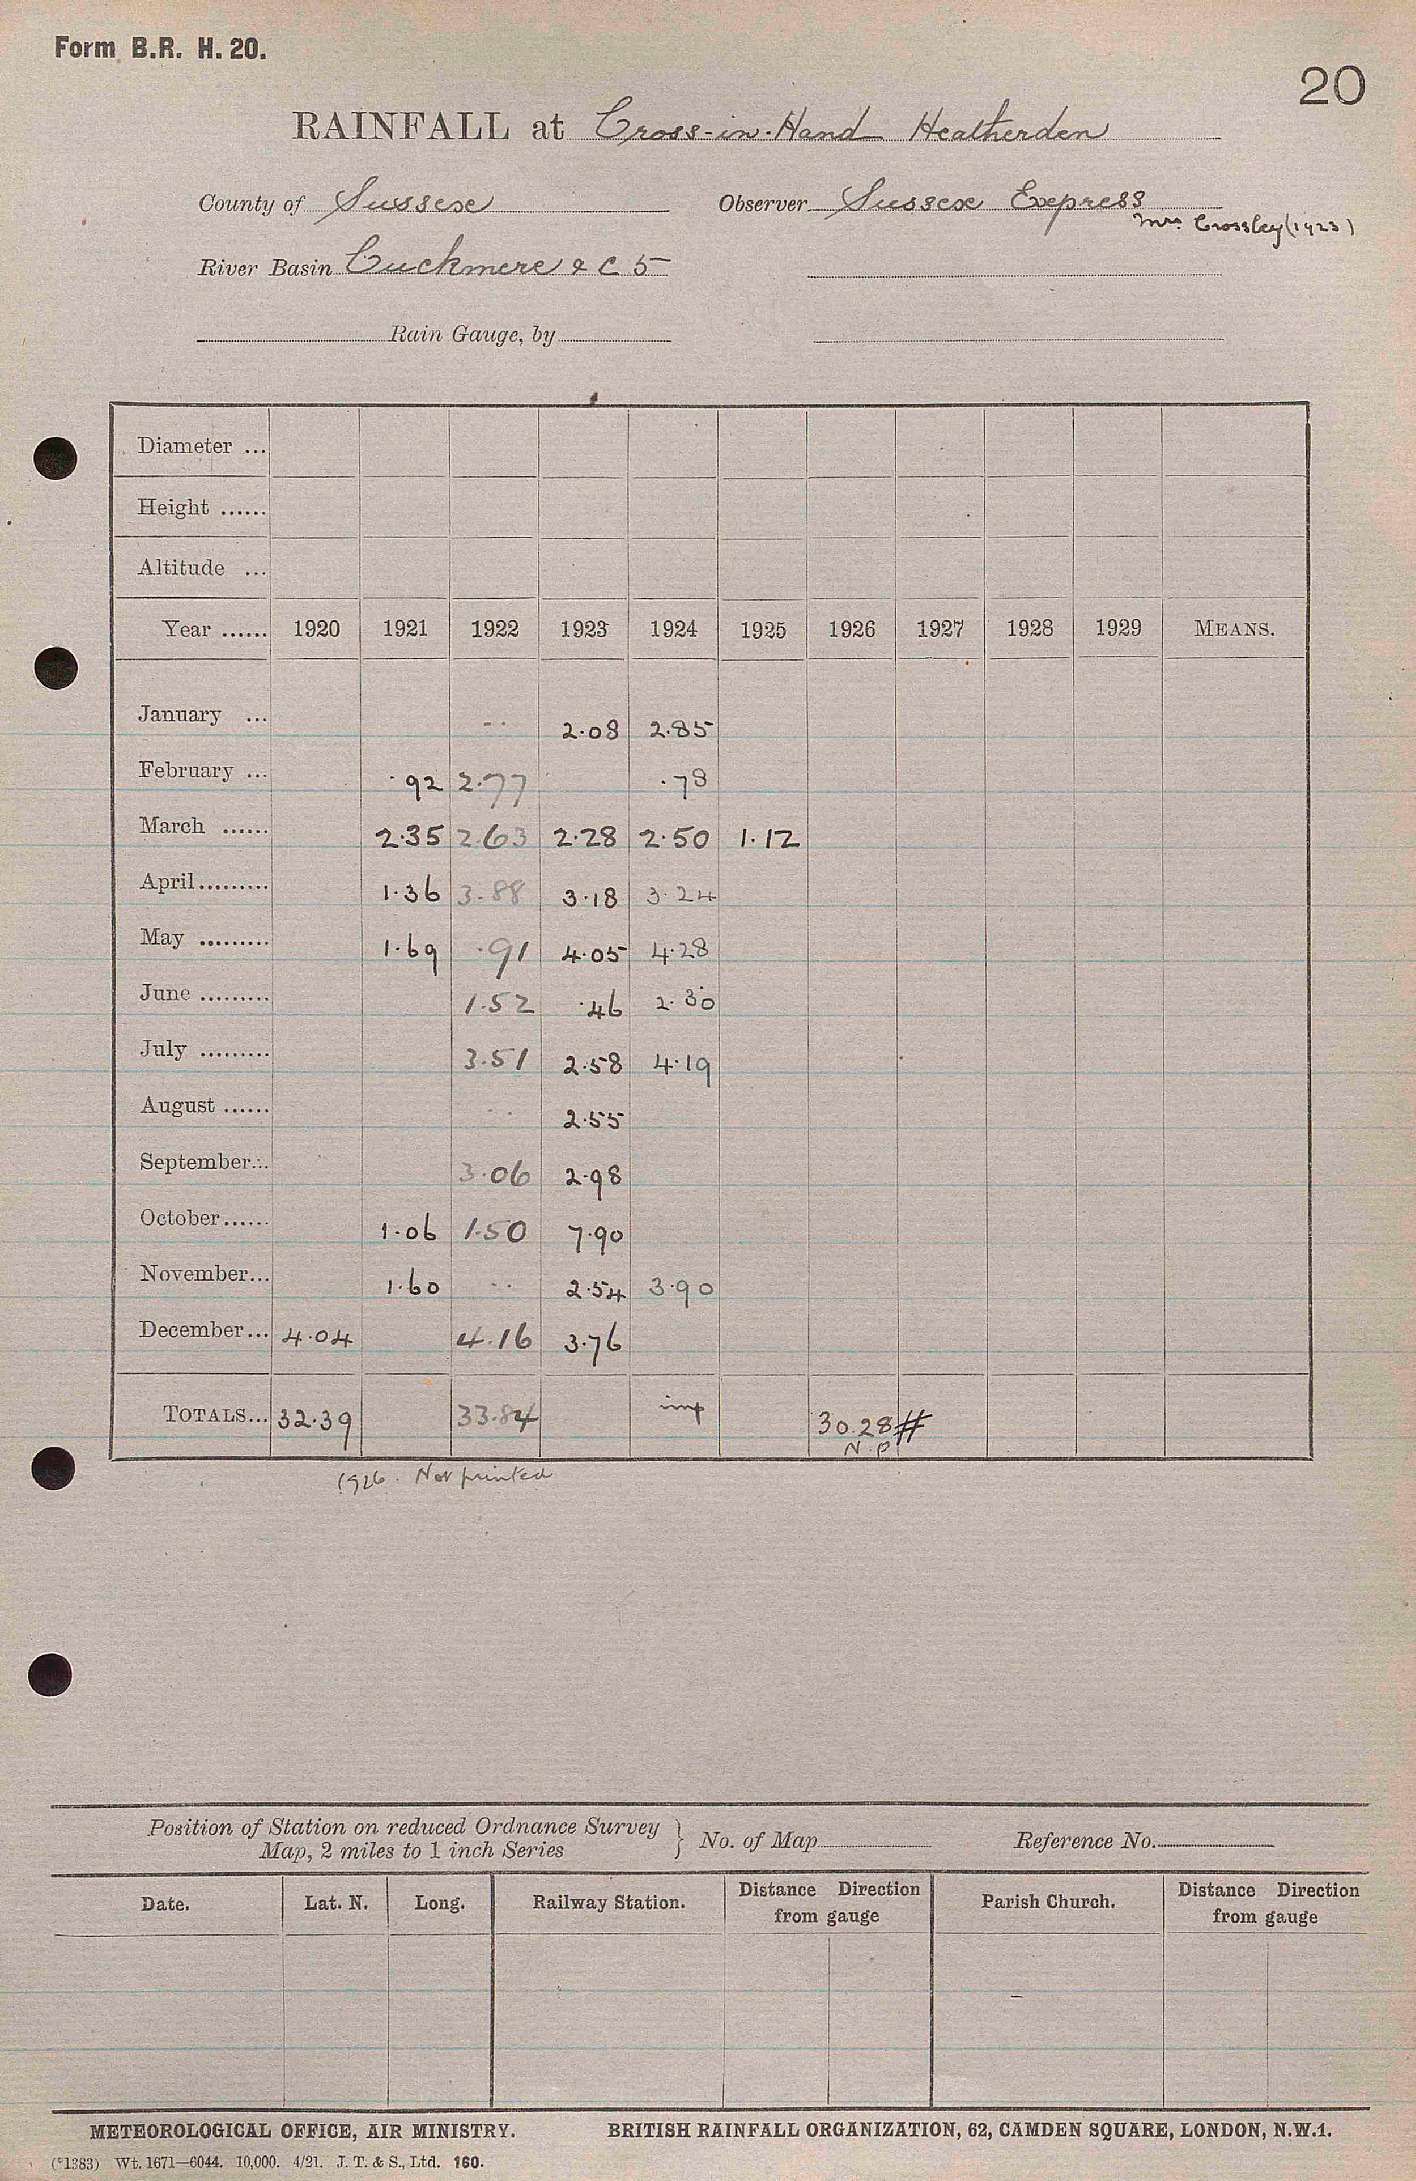 Form B.R. H. 20.
20
RAINFALL at Cross-in-Hand Heatherden
County of Sussex Observer Sussex Express
Mrs Crossley (1923)
River Basin Cuckmere & C 5
Rain Gauge, by
Diameter ...
Height ......
Altitude ...
Year ...... 1920 1921 1922 1923 1924 1925 1926 1927 1928 1929 MEANS.
January ... -- 2.08 2.85
February ... .92 2.77 .78
March ...... 2.35 2.63 2.28 2.50 1.12
April ......... 1.36 3.88 3.18 3.24
May ......... 1.69 .91 4.05 4.28
June ......... 1.52 .46 2.30
July ......... 3.51 2.58 4.19
August ...... -- 2.55
September... 3.06 2.98
October ...... 1.06 1.50 7.90
November... 1.60 -- 2.54 3.90
December... 4.04 4.16 3.76
TOTALS... 32.39 33.84 imp 30.28#
N.P
1926. Not printed
Position of Station on reduced Ordnance Survey
Map, 2 miles to 1 inch Series } No. of Map Reference No.
Date. Lat. N. Long. Railway Station. Distance Direction from gauge Parish Church. Distance Direction from gauge
METEOROLOGICAL OFFICE, AIR MINISTRY. BRITISH RAINFALL ORGANIZATION, 62, CAMDEN SQUARE, LONDON, N.W.1.
(*1383) Wt. 1671—6044. 10,000. 4/21. J. T. & S., Ltd. 160.